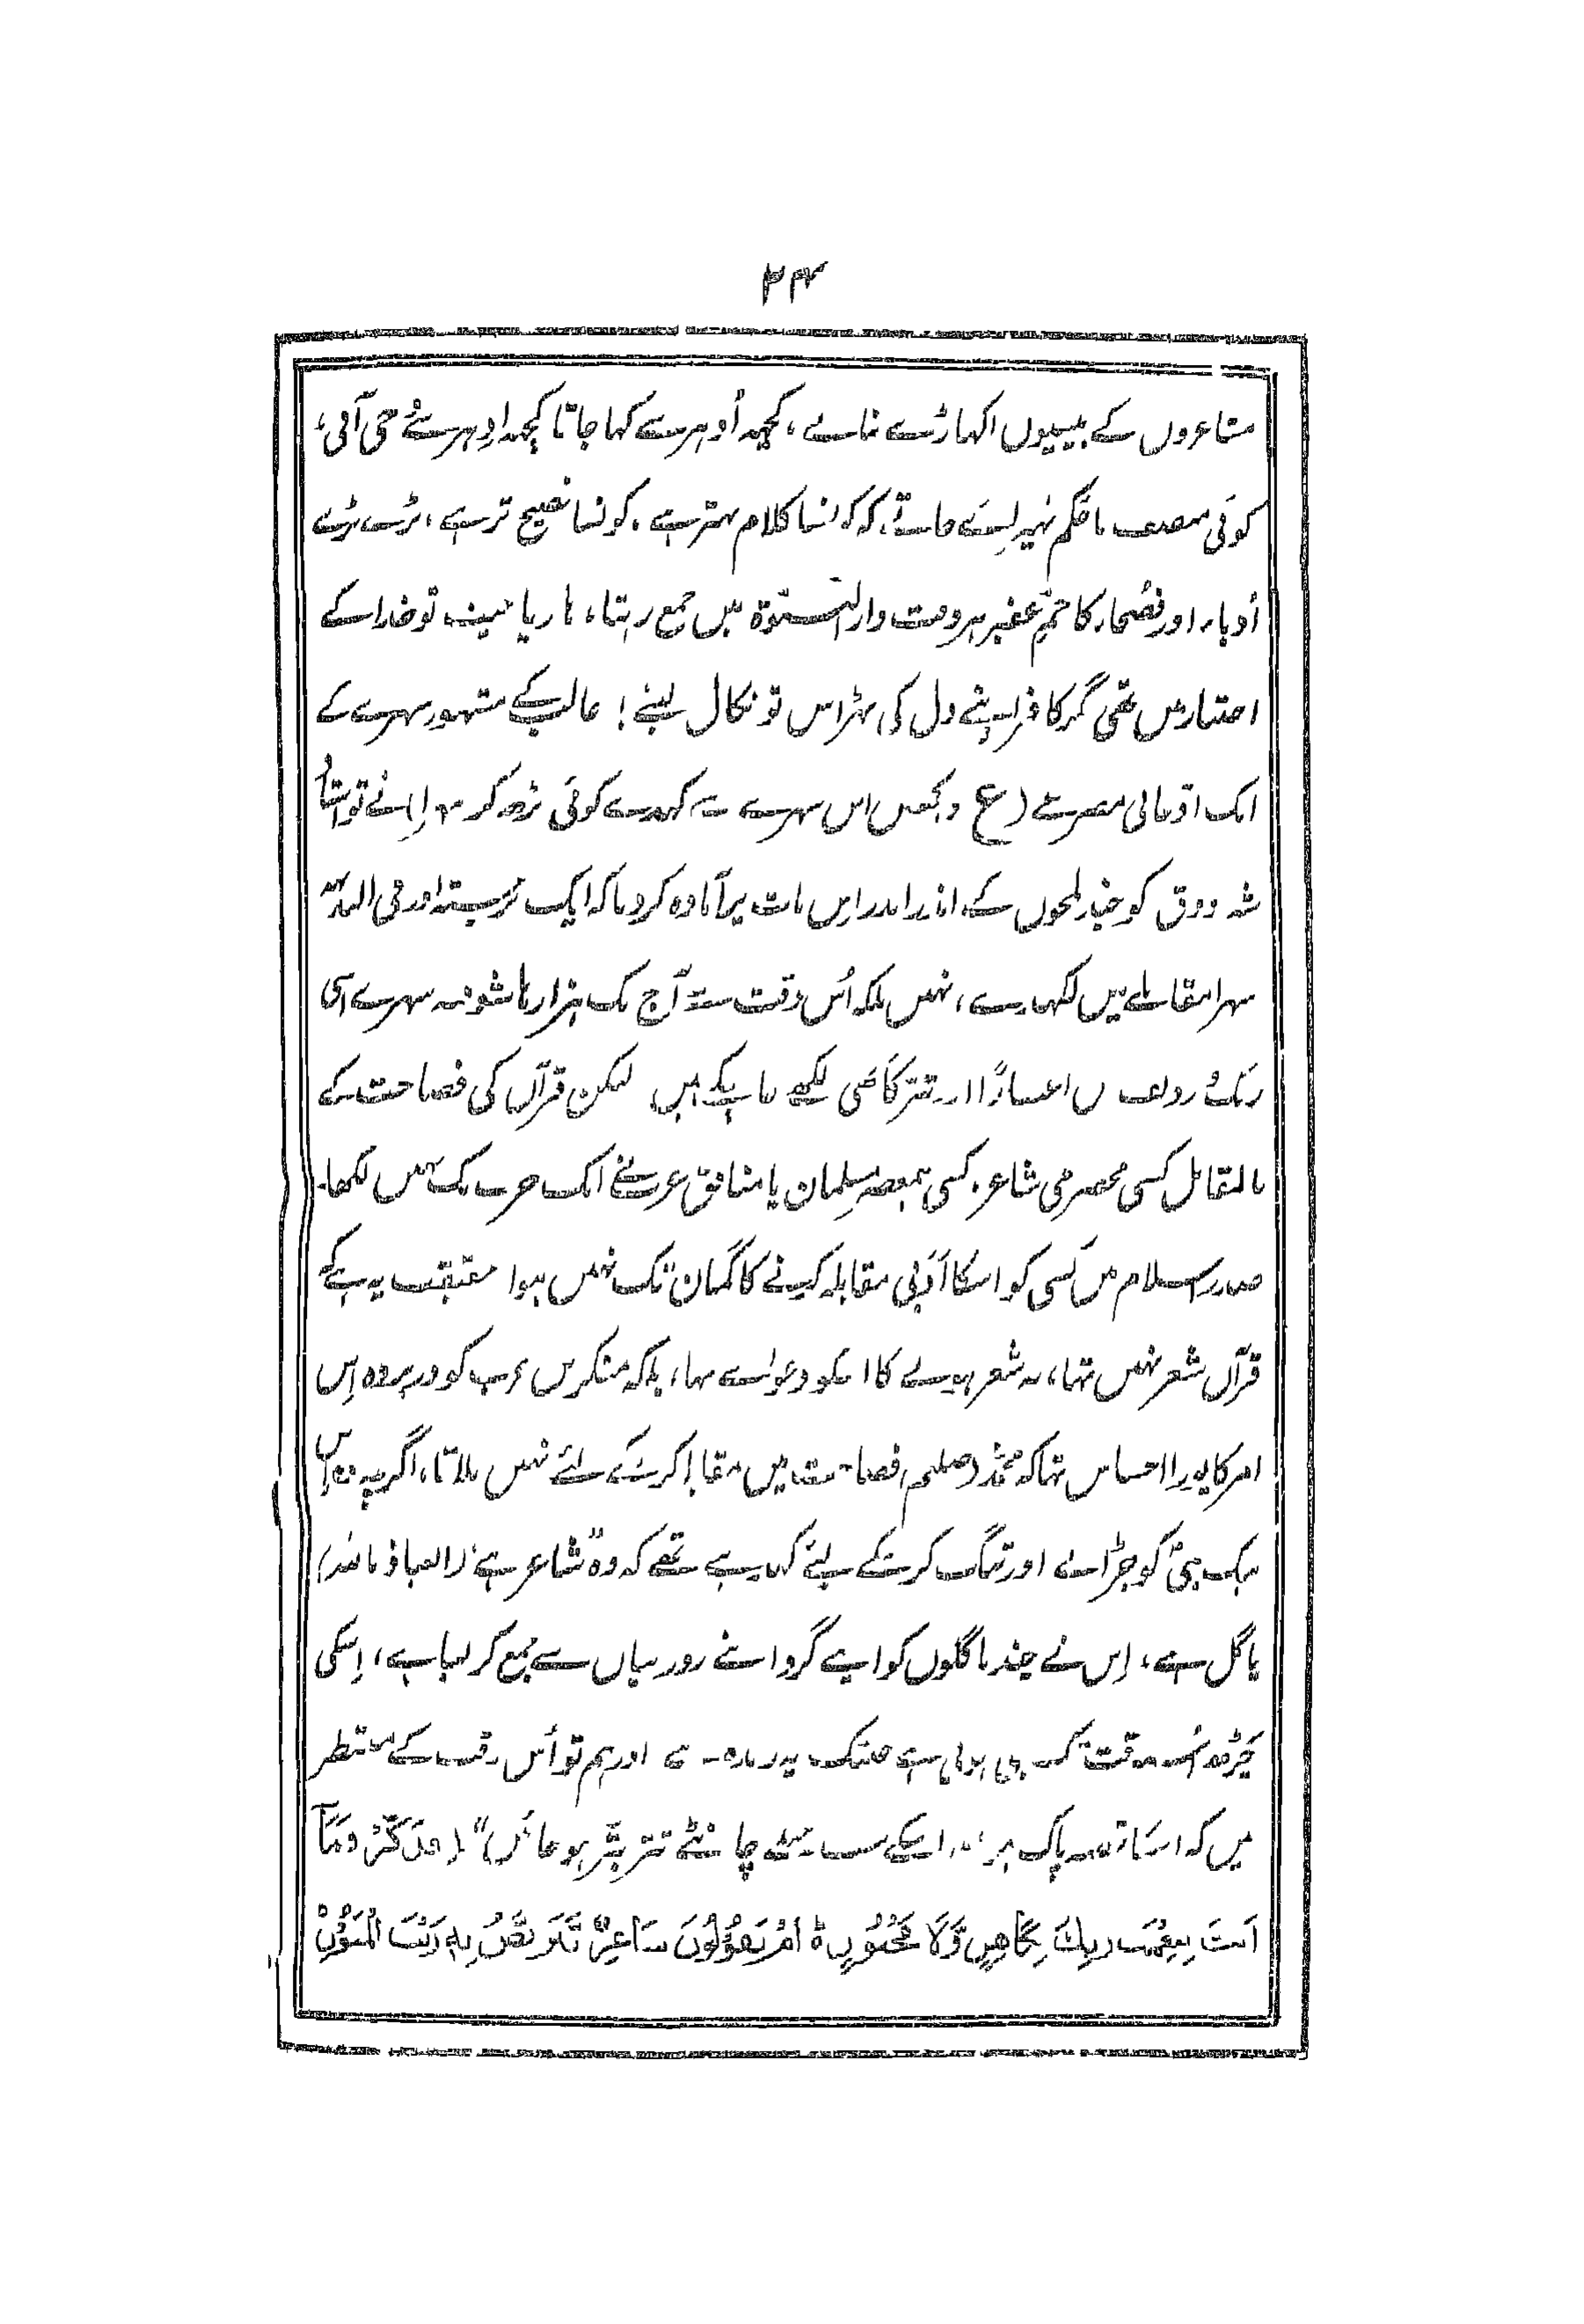 ۲۴
شاعروں کے بیسیوں اکہاڑے بناتے، کچھہ اُدہر سے کہا جاتا کچھہ اِدہر سے حی آتی،
کوئی منصف یا حَکم نہیں لئے جاتے، کہ کونسا کلام بہتر ہے، کونسا فصیح تر ہے، بڑے بڑے
اُدباء اور فُصحاء کا جمِّ غفیر ہر وقت دار الندوۃ میں جمع رہتا، ہار یا جیت تو خدا کے
اختیار میں تھی مگر کافر اپنے دل کی بھڑاس تو نکال لیتے! غالب کے مشہور سہرے کے
ایک ادّعائی مصرعے (ع دیکھیں اس سہرے سے کہدے کوئی بڑھ کر سہرا) نے تو اُستاد
شہ ذوق کو چند لمحوں کے اندر اندر اس بات پر آمادہ کر دیا کہ ایک برجستہ اور فی البدیہہ
سہرا مقابلے میں لکھہ دے، نہیں بلکہ اُس وقت سے آج تک ہزارہا شوخ سہرے اسی
رنگ و ردیف میں اعتبارًا اور تترکاضی لکھے جا چکے ہیں لیکن قرآن کی فصاحت کے
بالمقابل کسی مخضرمی شاعر، کسی بمعصر مسلمان یا منافق عرب نے ایک حرف تک نہیں لکھا۔
صدر اسلام میں کسی کو اسکا اَدَبی مقابلہ کرنے کا گمان تک نہیں ہوا حقیقت یہ ہے کہ
قرآن شعر نہیں تھا، نہ شعر ہونے کا اسکو دعوٰے تھا، بلکہ منکرین عرب کو در پردہ اِس
امر کا پورا احساس تھا کہ محمّد (صلعم) فصاحت میں مقابلہ کرنیکے لئے نہیں بلاتا، اگرچہ وہ اِس
نیک نبیؐ کو چڑانے اور تنگ کرنیکے لئے کہہ رہے تھے کہ وہ "شاعر ہے (العیاذ باللہ)
پاگل ہے، اِس نے چند پاگلوں کو اپنے گرد اپنے زور بیاں سے جمع کر لیا ہے، اِسکی
اور ہم تو اُس وقت کے منتظر
ہیں کہ اس کا سب چانٹے تتر بتر ہو جائیں" (فَذَكِّرْ فَمَآ
اَنتَ بِنِعْمَتِ رَبِّكَ بِكَاهِنٍ وَّلَا مَجْنُوْنٍ ہ اَمْ يَقُوْلُوْنَ شَاعِرٌ نَّتَرَبَّصُ بِهٖ رَيْبَ الْمَنُوْنِ